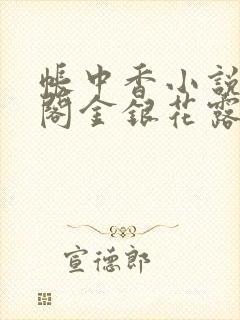 帳中香小說
閣金銀花露
宣德郎